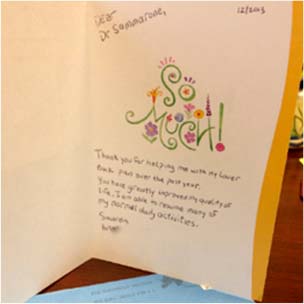 12/2013
Dear
Dr Sammarone,
So
Much!
Thank you for helping me with my lower
Back pain over the past year.
You have greatly improved my quality of
life. I am able to resume many of
my normal daily activities.
Sincerely